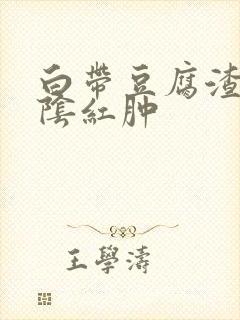 白帶豆腐渣
陰紅肿
王學濤